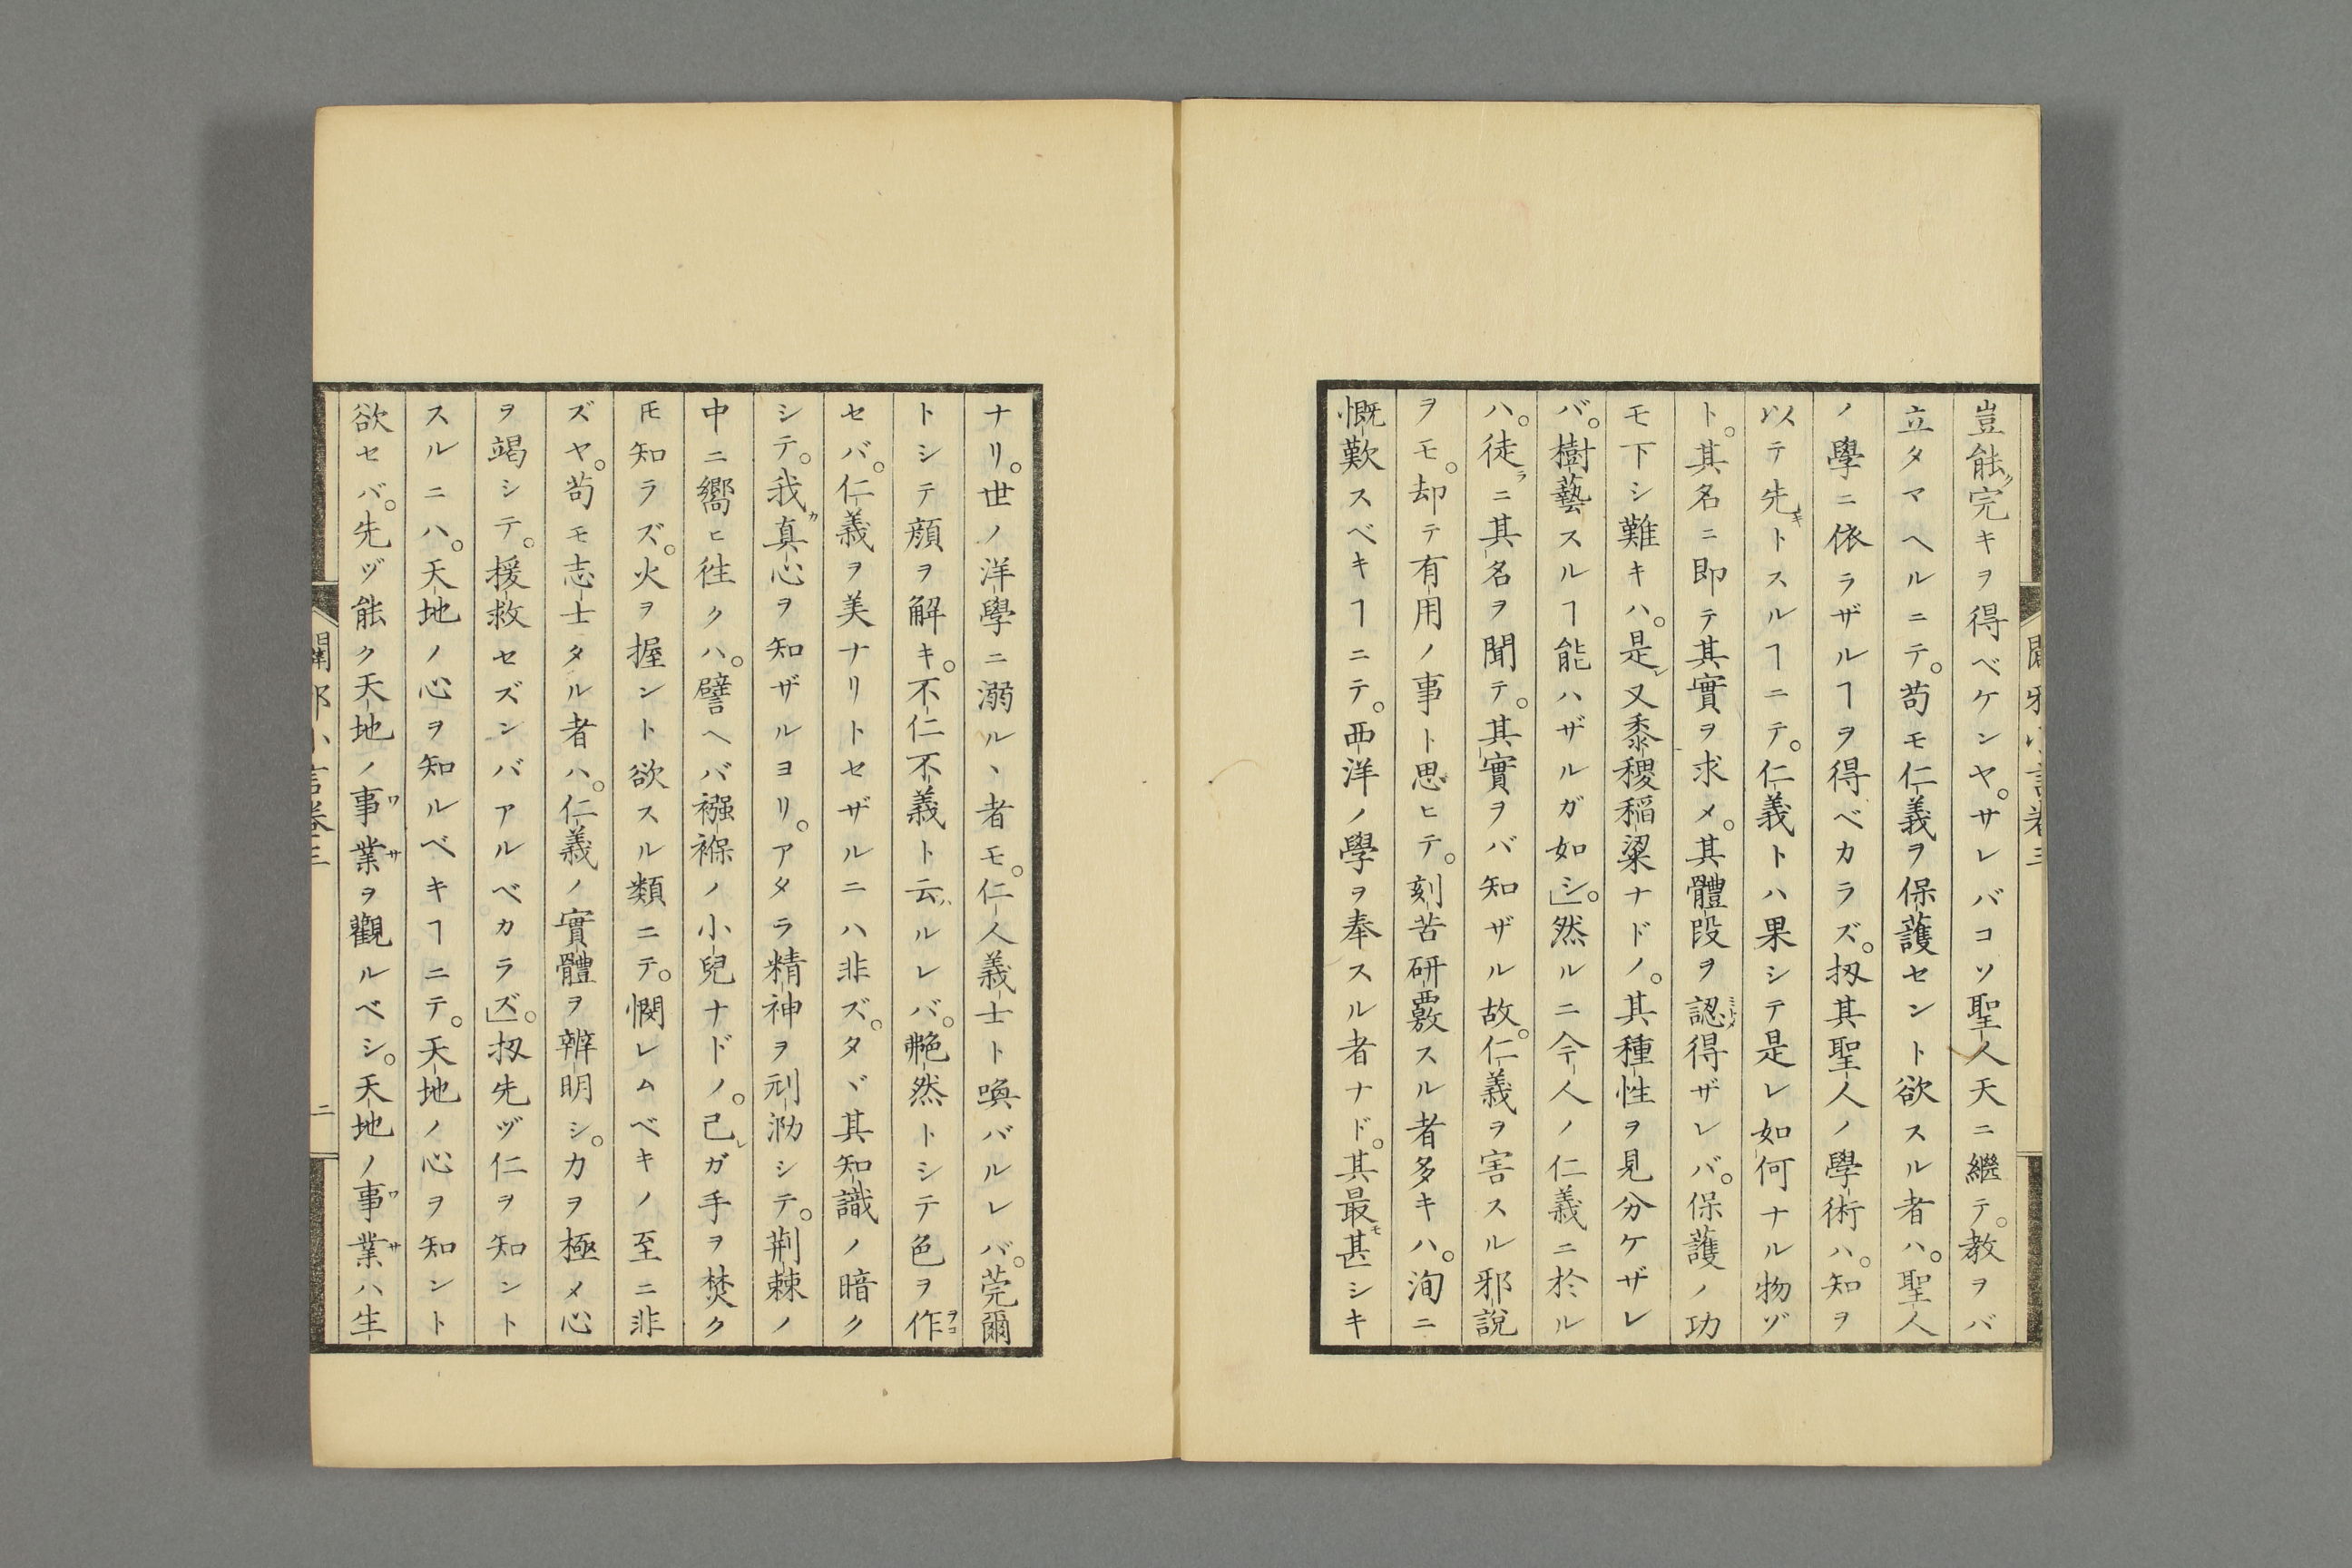 豈能完キヲ得ベケンヤ。サレバコソ聖人天ニ繼テ。教ヲバ
立タマヘルニテ。苟モ仁義ヲ保護セント欲スル者ハ。聖人
ノ學ニ依ラザルヿヲ得ベカラズ。扨其聖人ノ學術ハ。知ヲ
以テ先トスルヿニテ。仁義トハ果シテ是レ如何ナル物ゾ
ト。其名ニ即テ其實ヲ求メ。其體段ヲ認得ザレバ。保護ノ功
モ下シ難キハ。是レ又黍稷稲粱ナドノ。其種性ヲ見分ケザレ
バ。樹藝スルヿ能ハザルガ如シ」。然ルニ今人ノ仁義ニ於ル
ハ。徒ラニ其名ヲ聞テ。其實ヲバ知ザル故。仁義ヲ害スル邪說
ヲモ。却テ有用ノ事ト思ヒテ。刻苦研覈スル者多キハ。洵ニ
慨歎スベキヿニテ。西洋ノ學ヲ奉スル者ナド。其最モ甚シキ
ナリ。世ノ洋學ニ溺ルヽ者モ。仁人義士ト喚バルレバ。莞爾
トシテ顔ヲ解キ。不仁不義ト云ハルレバ。艴然トシテ色ヲ作
セバ。仁義ヲ美ナリトセザルニハ非ズ。タヾ其知識ノ暗ク
シテ。我ガ真心ヲ知ザルヨリ。アタラ精神ヲ刓泐シテ。荆棘ノ
中ニ嚮ヒ徃クハ。譬ヘバ襁褓ノ小兒ナドノ。己レガ手ヲ焚ク
𪜈知ラズ。火ヲ握ント欲スル類ニテ。憫レムベキノ至ニ非
ズヤ。苟モ志士タル者ハ。仁義ノ實體ヲ辨明シ。力ヲ極メ心
ヲ竭シテ。援救セズンバアルベカラズ」。扨先ヅ仁ヲ知ント
スルニハ。天地ノ心ヲ知ルベキヿニテ。天地ノ心ヲ知ント
欲セバ。先ヅ能ク天地ノ事業ヲ觀ルベシ。天地ノ事業ハ生
闢邪小言卷三
二